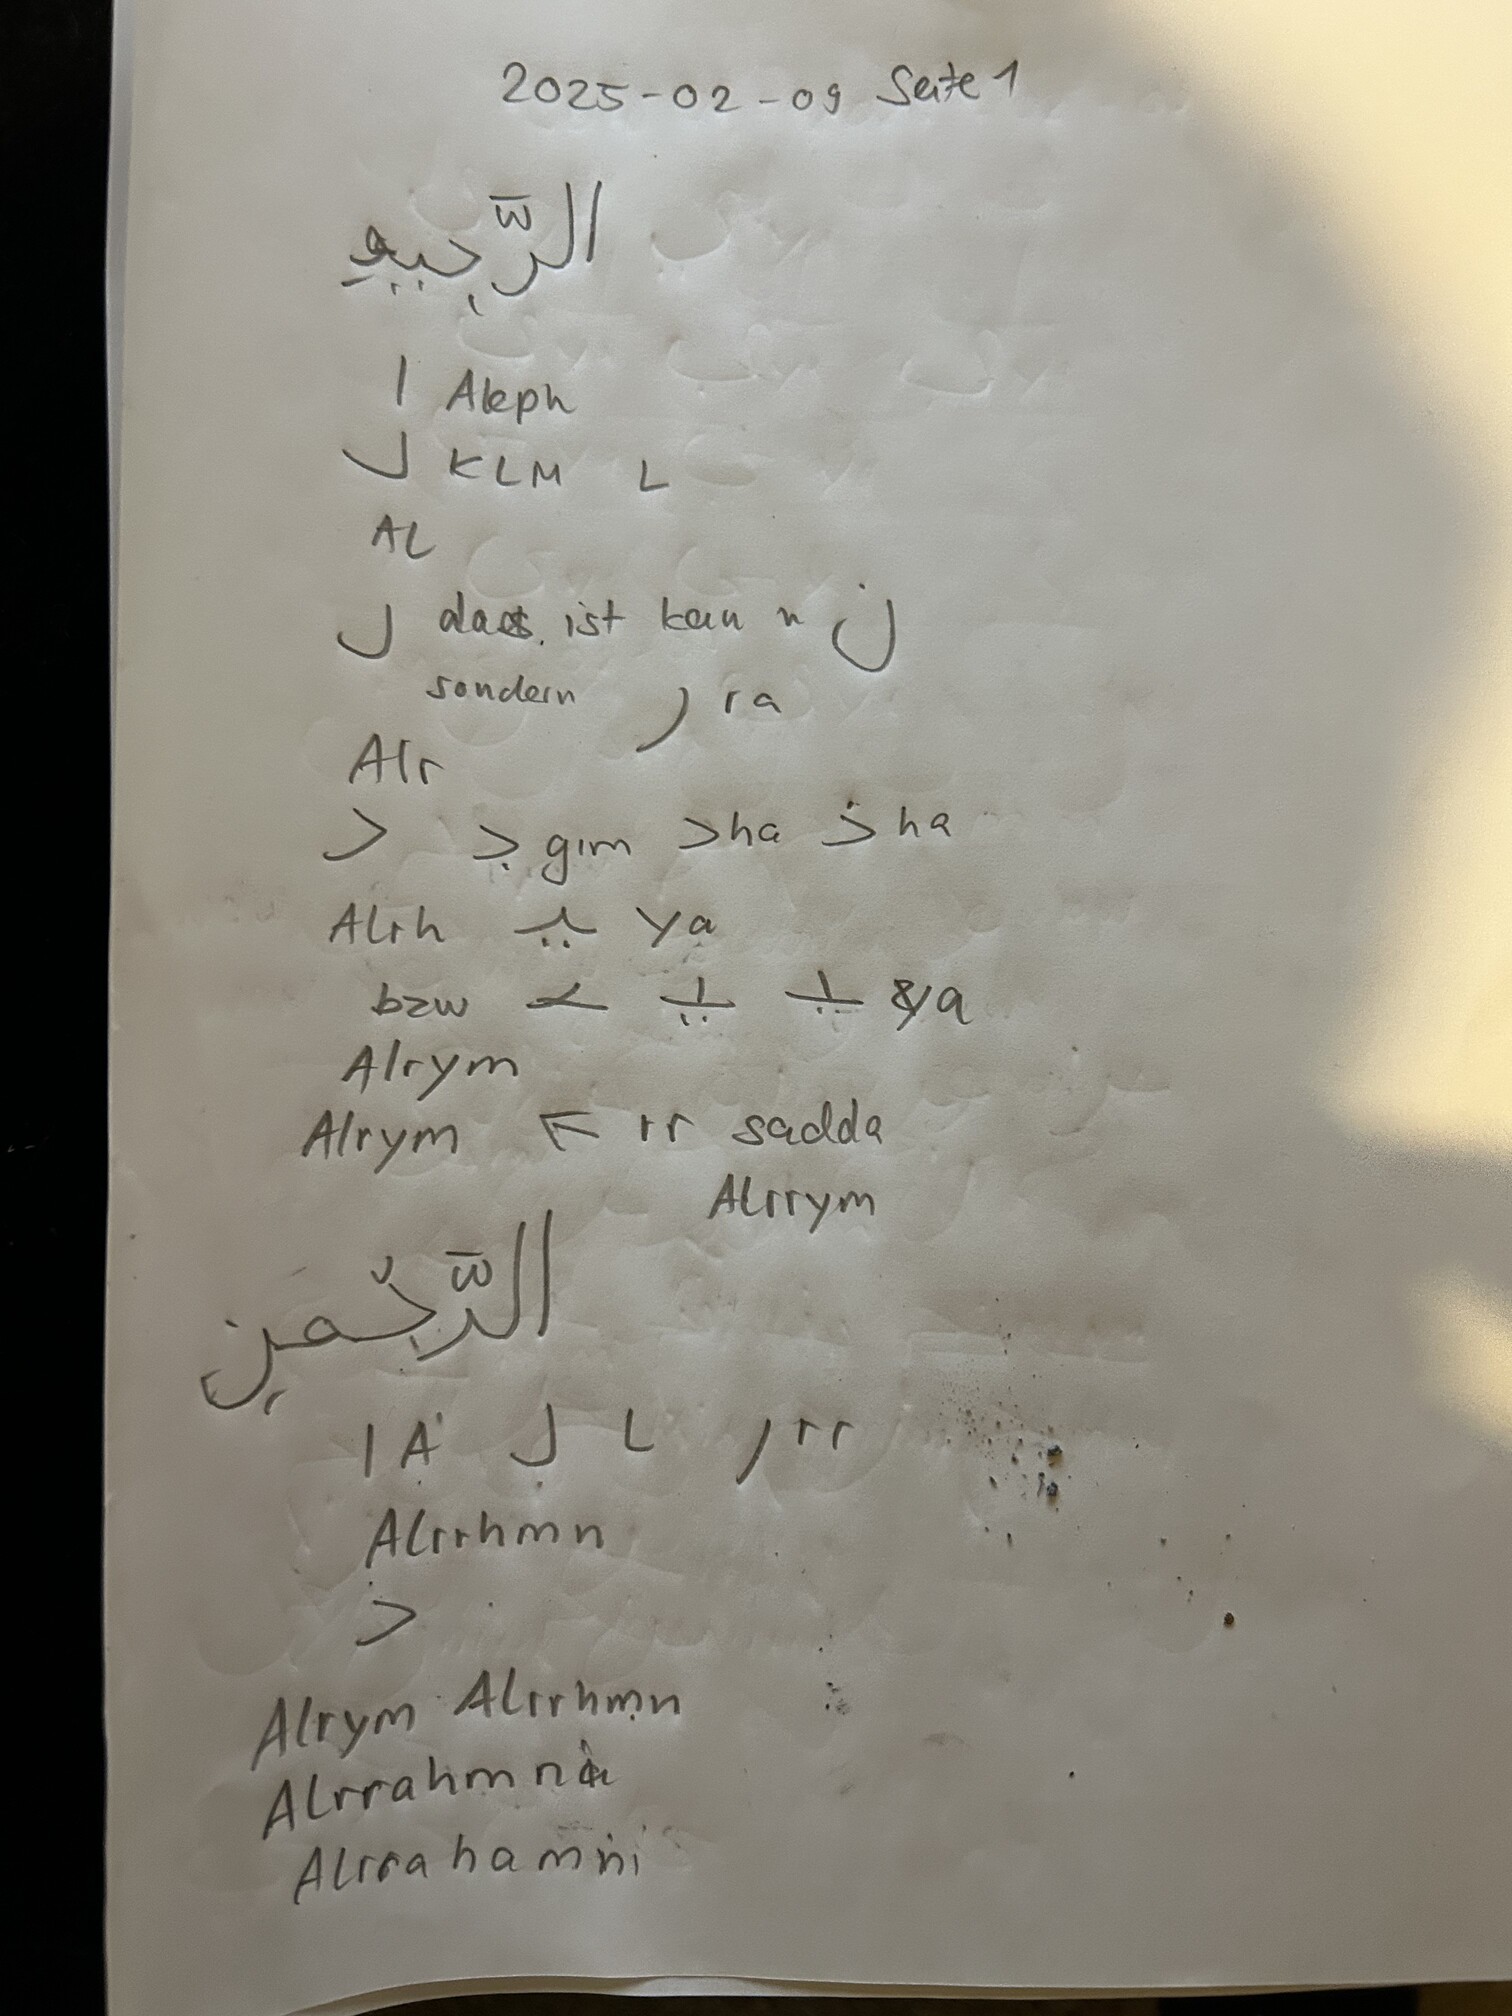 2025-02-09 Seite 1
الرَّجِيمِ
ا Aleph
ل KLM L
AL
ل das ist kein n ن
sondern ر ra
Alr
ح ج gim ح ha خ ha
Alrh ـيـ ya
bzw ـيـ ـيـ ya
Alrym
Alrym ← rr sadda
Alrrym
الرَّحْمنِ
ا A ل L ر rr
Alrrhmn
ح
Alrym Alrrhmn
Alrrahmni
Alrrahamni